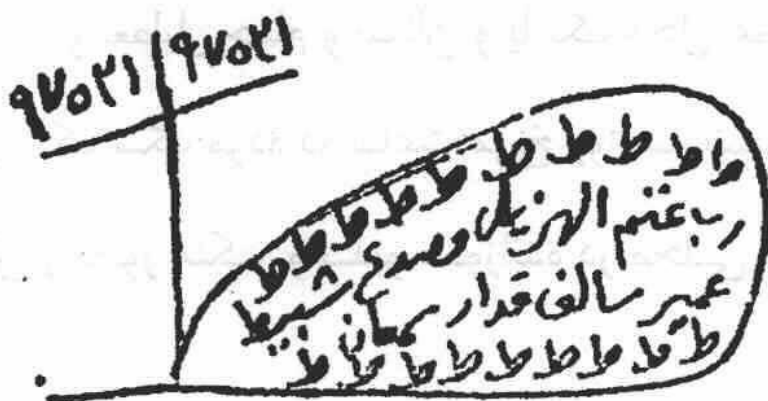 ٩٧٥٣١ ٩٧٥٣١
ط ط ط ط ط ط ط ط ط ط
رب عثم الهزيل وصدوع شميط
عمير سالف قدار سمعان
ط ط ط ط ط ط ط ط ط